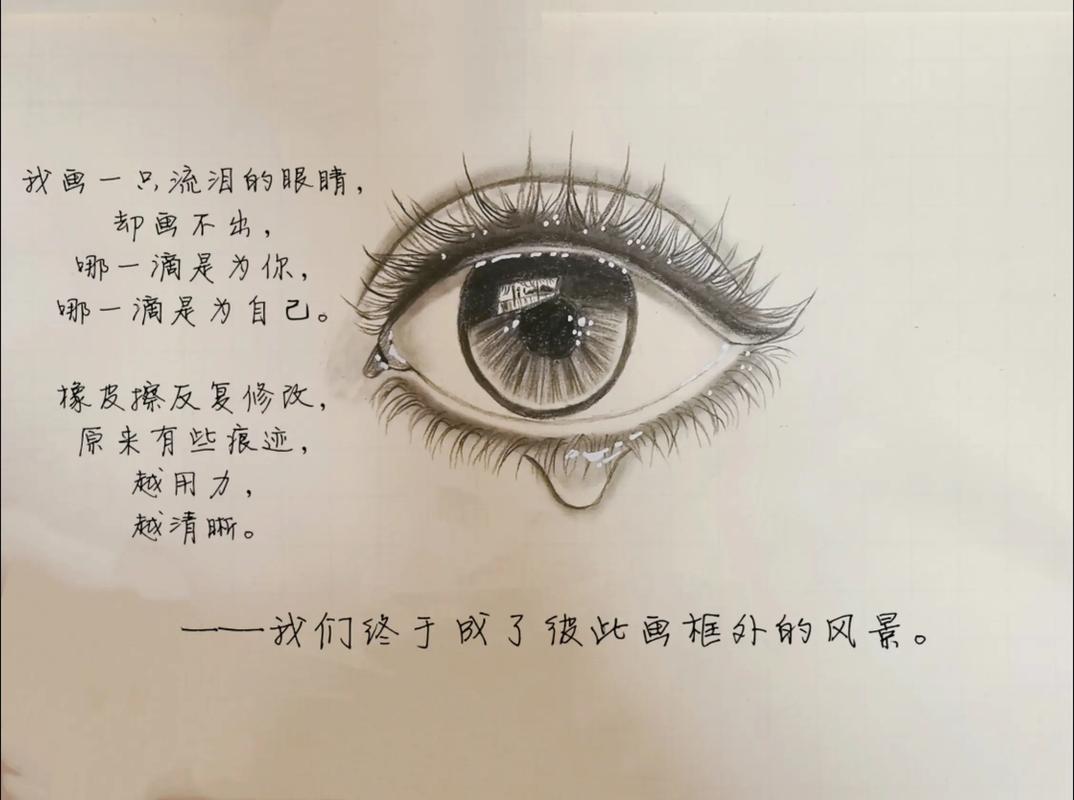 我画一只流泪的眼睛，
却画不出，
哪一滴是为你，
哪一滴是为自己。
橡皮擦反复修改，
原来有些痕迹，
越用力，
越清晰。
——我们终于成了彼此画框外的风景。